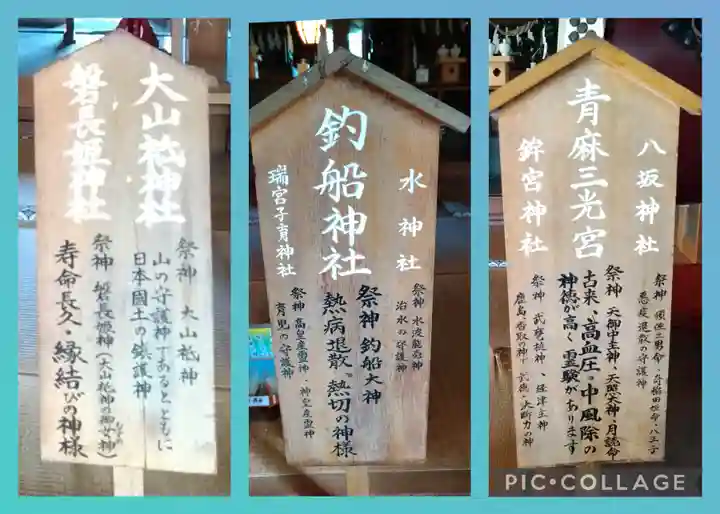 大山祇神社
磐長姫神社
祭神 大山祇神
山の守護神であるとともに
日本國土の鎮護神
祭神 磐長姫神(大山祇神の御女神)
寿命長久・縁結びの神様
水神社
釣船神社
瑞宮子育神社
祭神 水波能売神
治水の守護神
祭神 釣船大神
熱病退散、熱切の神様
祭神 高皇産霊神・神皇産霊神
育児の守護神
八坂神社
青麻三光宮
鉾宮神社
悪疫退散の守護神
祭神 天御中主神、天照大神、月読命
古来、高血圧・中風除の
神徳が高く霊験があります
祭神 武甕槌神、経津主神
鹿島、香取の神で武徳・決断力の神
PIC•COLLAGE